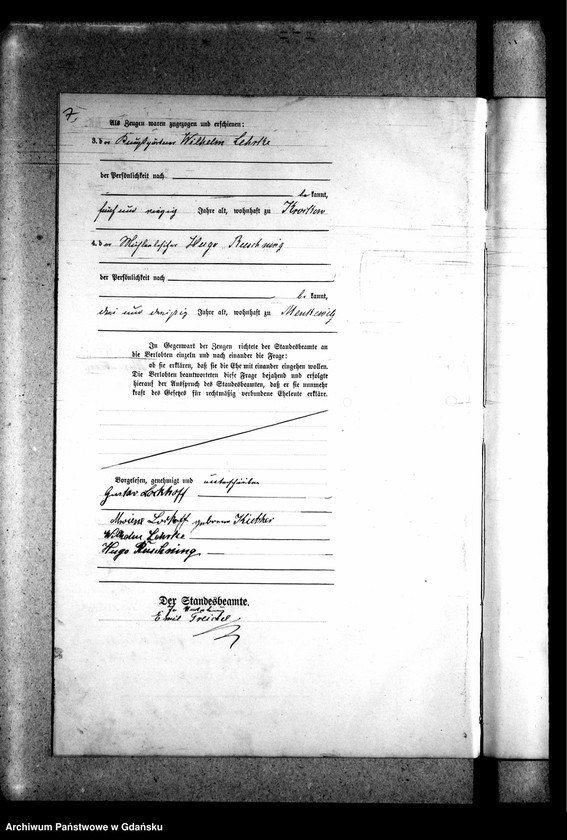 7.
Als Zeugen waren zugezogen und erschienen:
3. der Kunstgärtner Wilhelm Lehrke
der Persönlichkeit nach
be kannt,
fünf und vierzig Jahre alt, wohnhaft zu Krockow
4. der Mühlenbesitzer Hugo Ruschning
der Persönlichkeit nach
be kannt,
drei und dreißig Jahre alt, wohnhaft zu
In Gegenwart der Zeugen richtete der Standesbeamte an
die Verlobten einzeln und nach einander die Frage:
ob sie erklären, daß sie die Ehe mit einander eingehen wollen.
Die Verlobten beantworteten diese Frage bejahend und erfolgte
hierauf der Ausspruch des Standesbeamten, daß er sie nunmehr
kraft des Gesetzes für rechtmäßig verbundene Eheleute erkläre.
Vorgelesen, genehmigt und unterschrieben
Gustav
geborene
Wilhelm Lehrke
Hugo Ruschning
Der Standesbeamte.
In Vertretung
Emil Treichel
Archiwum Państwowe w Gdańsku